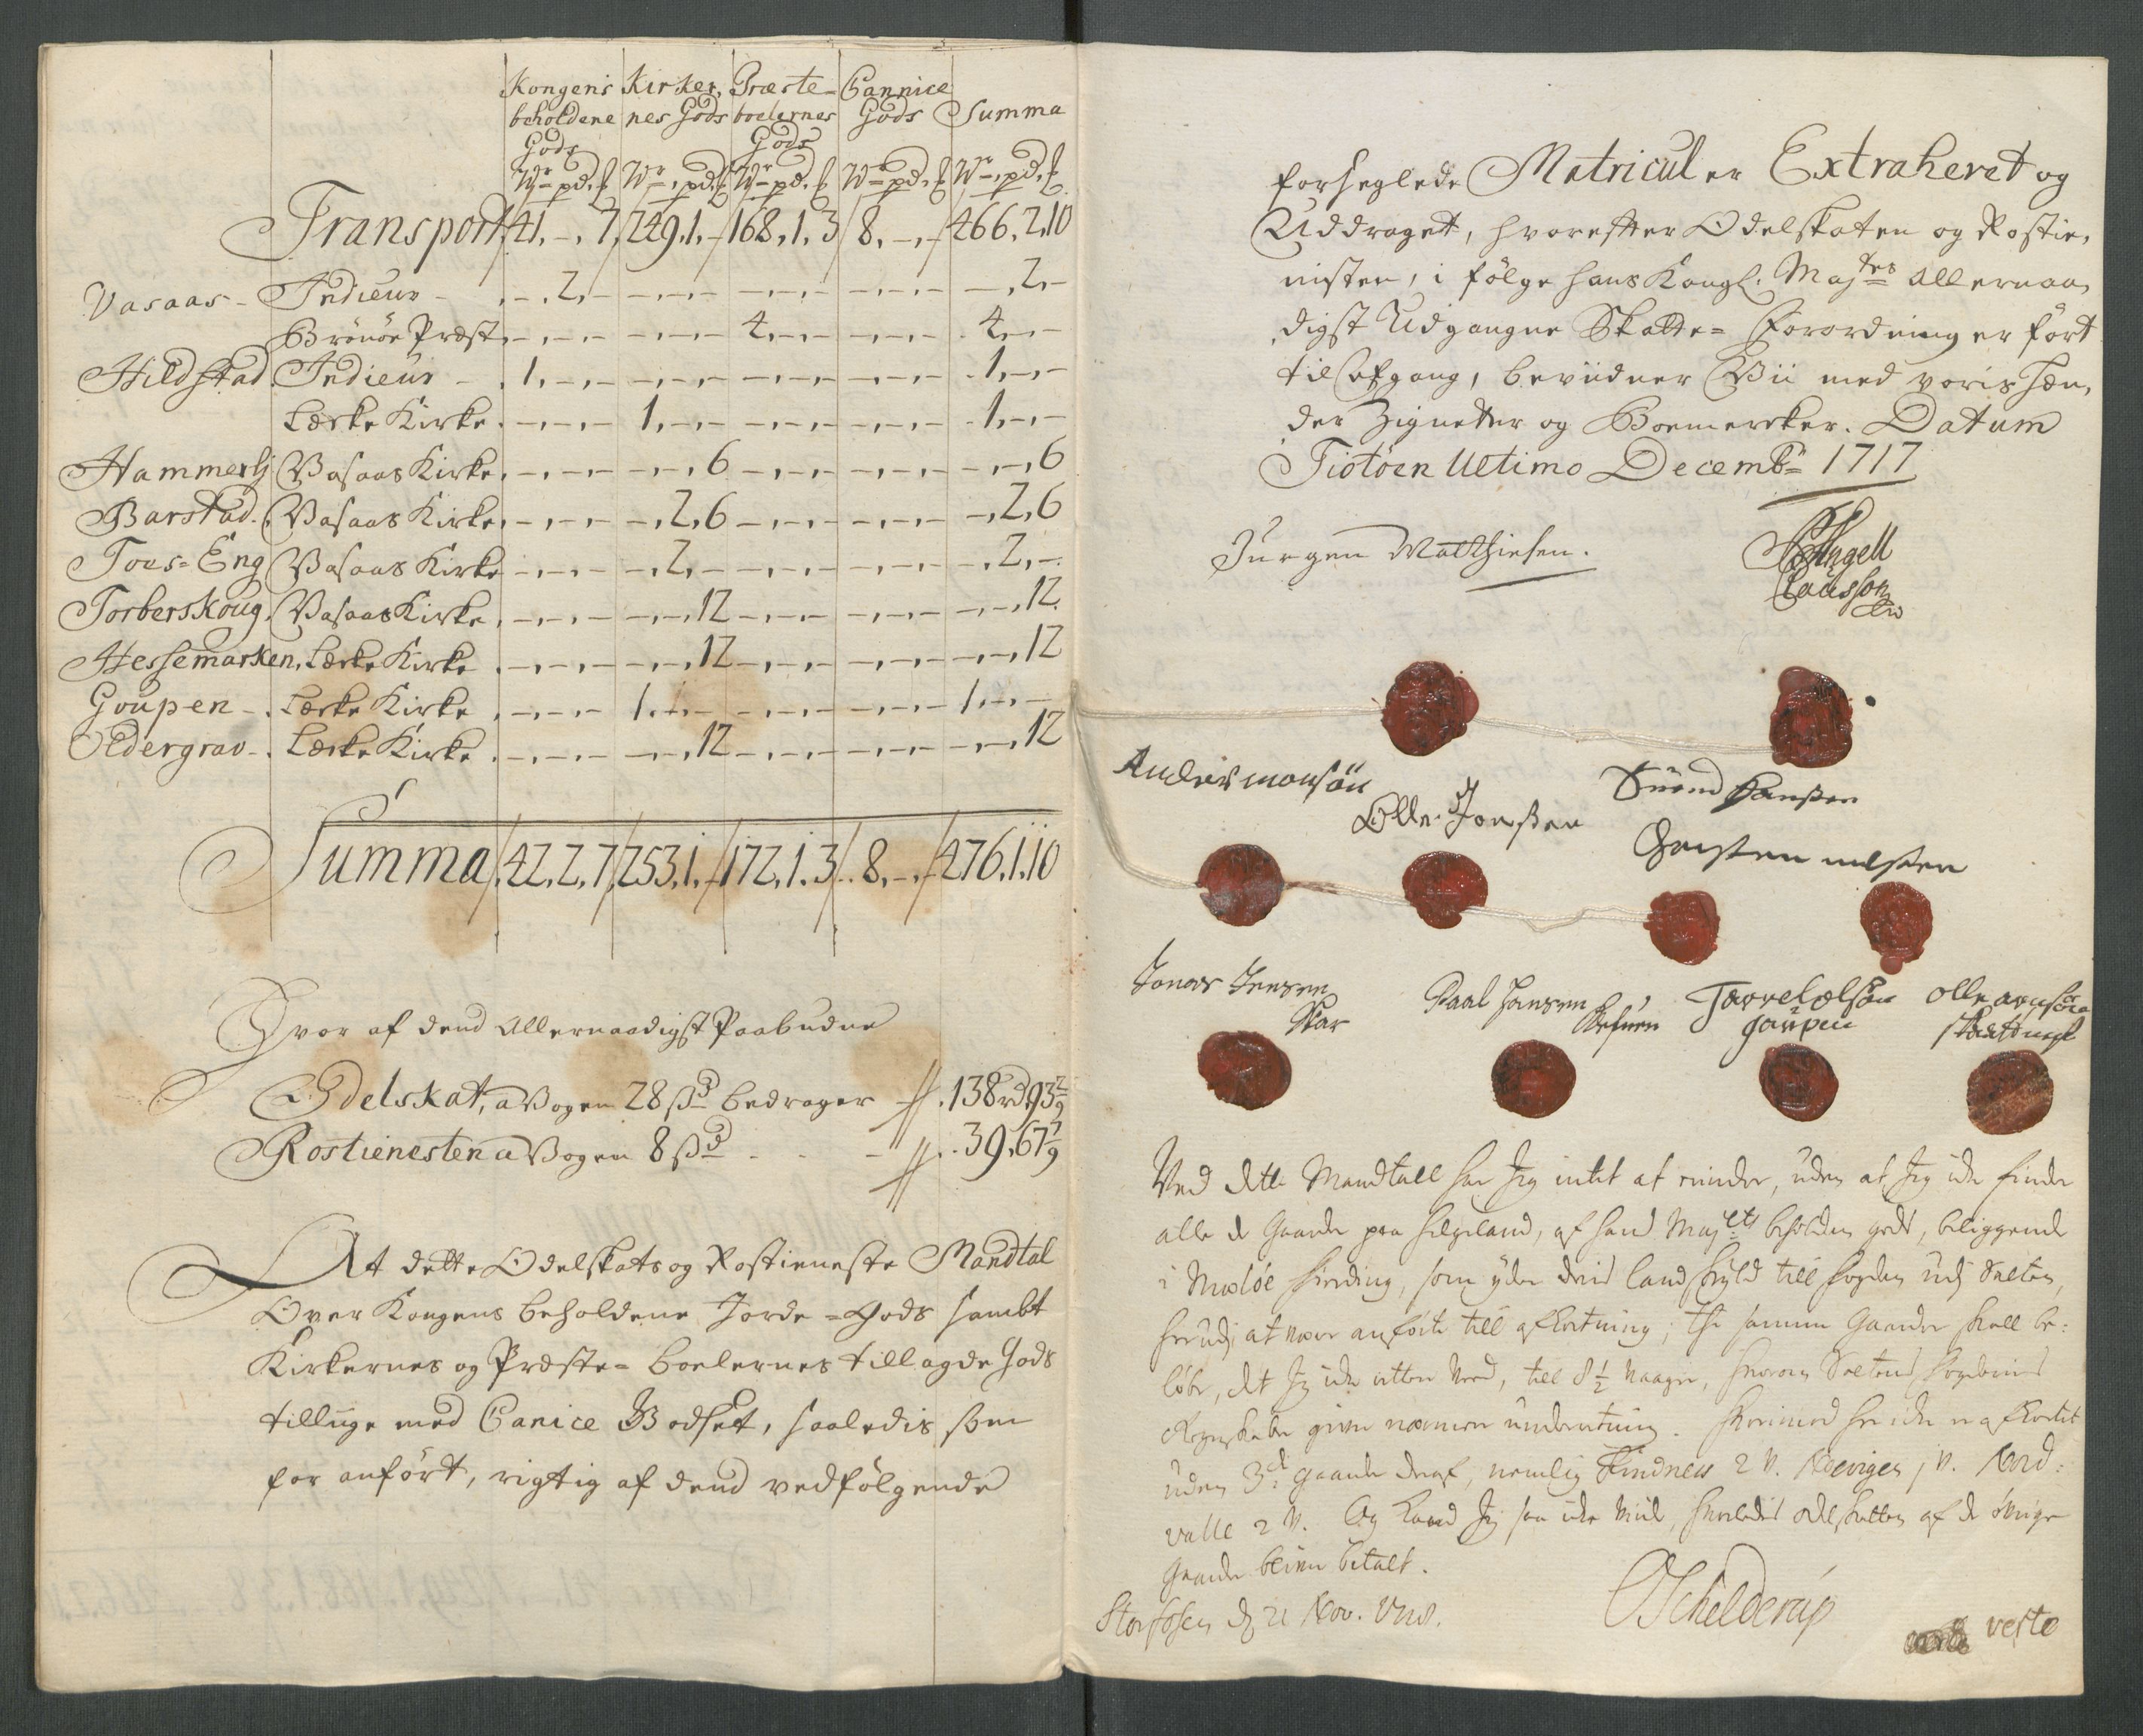 Kongens beholdene Gods | Kirkernes Gods | Præsteboelernes Gods | Cannice Gods | Summa
Wr pd. | Wr pd. | Wr pd. | Wr pd. | Wr pd.
Transport 41,-,7, 249,1,- 168,1,3 8,-,- 466,2,10
Vasaas - Indieur - -,2,- -,-,- -,-,- -,-,- -,2,-
Brönöe Præst -,-,- -,-,- 4,-,- -,-,- 4,-,-
Hildstad Indieur - 1,-,- -,-,- -,-,- -,-,- 1,-,-
Kirke -,-,- 1,-,- -,-,- -,-,- 1,-,-
Hammerlj Vasaas Kirke -,-,- -,-,6 -,-,- -,-,- -,-,6
Barstad Vasaas Kirke -,-,- -,2,6 -,-,- -,-,- -,2,6
Toes=Eng Vasaas Kirke -,-,- -,2,- -,-,- -,-,- -,2,-
Torberskoug Vasaas Kirke -,-,- -,-,12 -,-,- -,-,- -,-,12
Hessemarken Kirke -,-,- -,-,12 -,-,- -,-,- -,-,12
Goupen - Kirke -,-,- 1,-,- -,-,- -,-,- 1,-,-
Oldergrav - Kirke -,-,- -,-,12 -,-,- -,-,- -,-,12
Summa 42,2,7, 253,1,- 172,1,3 8,-,- 476,1,10
Hvor af dend Allernaadigst Paabudne
Odelskat, a Vogen 28 ß bedrager 138 rd 93 2/9
Rostienesten a Vogen 8 ß - 39,67 1/9
At dette Odelskats og Rostieneste Mandtal
Over Kongens beholdene Jorde=Gods sambt
Kirkernes og Præste=boelernes tillagde Gods
tillige med Canice Godset, saaledis som
for anfört, rigtig af dend vedfölgende
forseglede Matricul er Extraheret og
Uddraget, hvorefter Odelskaten og Rostie,
nisten, i fölge hans Kongl. Majts allernaa,
digst Udgangne Skatte=Forordning er fört
til afgang, beviidner Vii med voris hæn,
der Zignetter og Boemercker. Datum
Tiotöen Ultimo Decembr 1717
Jurgen Matthiesen.
Angell
Claüsson
Anders monsön
Olle Jonßen
Suend Hanßen
nilsen
Jonas Jensen
Skar
Paal Hansen
Torrel olsön
Gaüpen
Olle
Ved dette Mandtall har Jeg intet at minde, uden at Jeg icke finder
alle de Gaarde paa Helgeland, af hans Majts beholdne gods, beliggende
i fierding, som yder deris landskyld till fogden udj Salten,
herudj at være anförte till afkortning; thi samme Gaarder skall be:
löbe, det Jeg icke rettere veed, till 8 1/2 Vaager, hvorom Saltens fogderies
Regnskaber giver nærmere underretning. Hvorimod her icke er afkortet
uden 3de gaarde deraf, nemlig Tindness 2 V. 1 V. Nord:
valle 2 V. Og kand Jeg saa icke viide, hvorledis odelskatten af de övrige
Gaarde bliver betalt.
Storfosen d. 21 Nov. 1718.
OSchelderup
verte